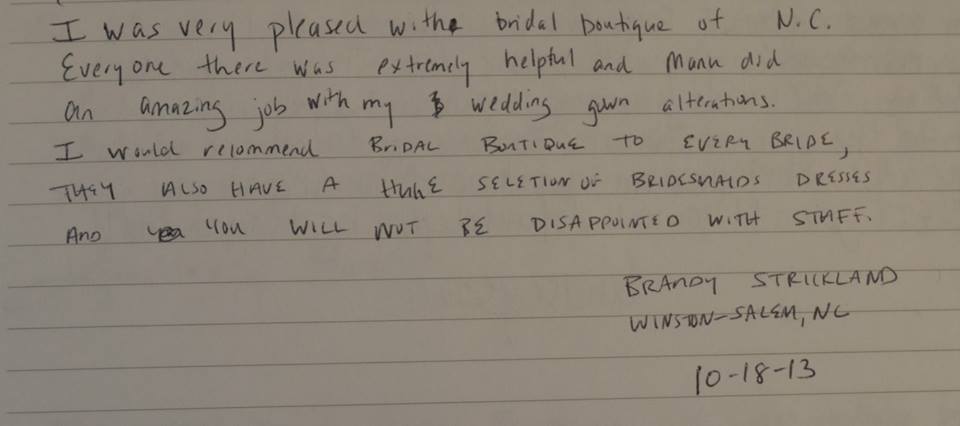 I was very pleased with bridal boutique of N.C.
Everyone there was extremely helpful and Manu did
an amazing job with my wedding gown alterations.
I would recommend BRIDAL BOUTIQUE TO EVERY BRIDE,
THEY ALSO HAVE A HUGE SELETION OF BRIDESMAIDS DRESSES
AND YOU WILL NOT BE DISAPPOINTED WITH STAFF.
BRANDY STRICKLAND
WINSTON-SALEM, NC
10-18-13